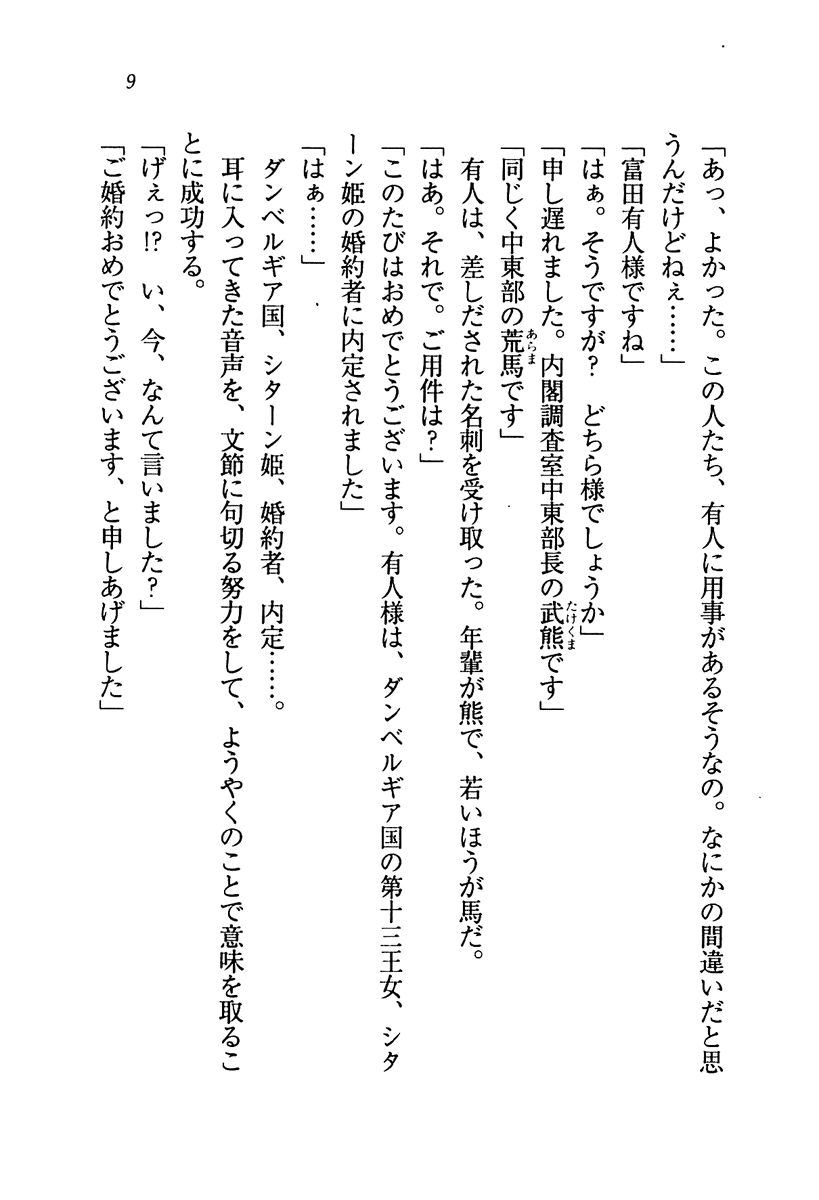 9
「あっ、よかった。この人たち、有人に用事があるそうなの。なにかの間違いだと思
うんだけどねぇ……」
「富田有人様ですね」
「はぁ。そうですが？　どちら様でしょうか」
「申し遅れました。内閣調査室中東部長の武熊です」
「同じく中東部の荒馬です」
　有人は、差しだされた名刺を受け取った。年輩が熊で、若いほうが馬だ。
「はあ。それで。ご用件は？」
「このたびはおめでとうございます。有人様は、ダンベルギア国の第十三王女、シタ
ーン姫の婚約者に内定されました」
「はぁ……」
　ダンベルギア国、シターン姫、婚約者、内定……。
　耳に入ってきた音声を、文節に句切る努力をして、ようやくのことで意味を取るこ
とに成功する。
「げぇっ!?　い、今、なんて言いました？」
「ご婚約おめでとうございます、と申しあげました」